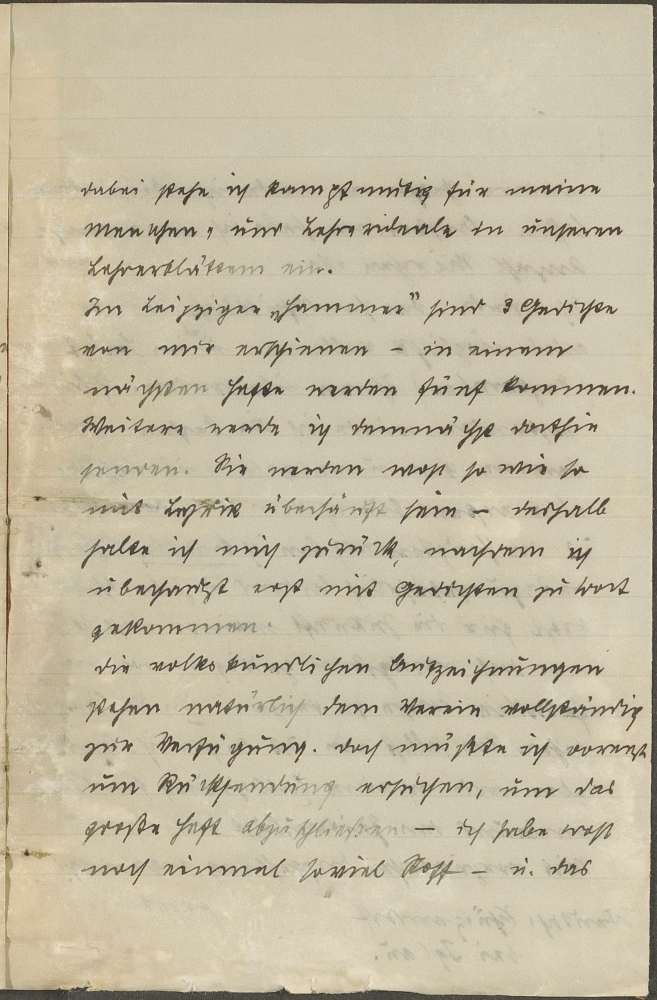 dabei stehe ich kampfmutig für meine
Menschen- und Lehrerideale in unseren
Lehrerblättern ein.
Im Leipziger „Hammer“ sind 3 Gedichte
von mir erschienen – in einem
nächsten Hefte werden fünf kommen.
Weitere werde ich demnächst dorthin
senden. Sie werden wohl so wie so
mit Lyrik überhäuft sein – deshalb
halte ich mich zurück, nachdem ich
überhaupt erst mit Gedichten zu Wort
gekommen.
Die volkskundlichen Aufzeichnungen
stehen natürlich dem Verein vollständig
zur Verfügung. Doch müßte ich vorerst
um Rücksendung ersuchen, um das
große Heft abzuschließen – ich habe wohl
noch einmal soviel Stoff – u. das